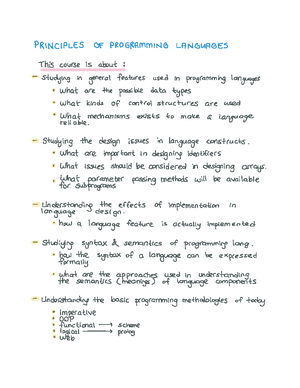 PRINCIPLES OF PROGRAMMING LANGUAGES
This course is about :
– Studying in general features used in programming languages
• What are the possible data types
• What kinds of control structures are used
• What mechanisms exists to make a language
reliable.
– Studying the design issues in language constructs.
• What are important in designing identifiers
• What issues should be considered in designing arrays.
• What parameter passing methods will be available
for subprograms
– Understanding the effects of implementation in
language design.
• how a language feature is actually implemented
– Studying syntax & semantics of programming lang.
• how the syntax of a language can be expressed
formally
• what are the approaches used in understanding
the semantics (meanings) of language components
– Understanding the basic programming methodologies of today
• imperative
• OOP
• functional → scheme
• logical → prolog
• web